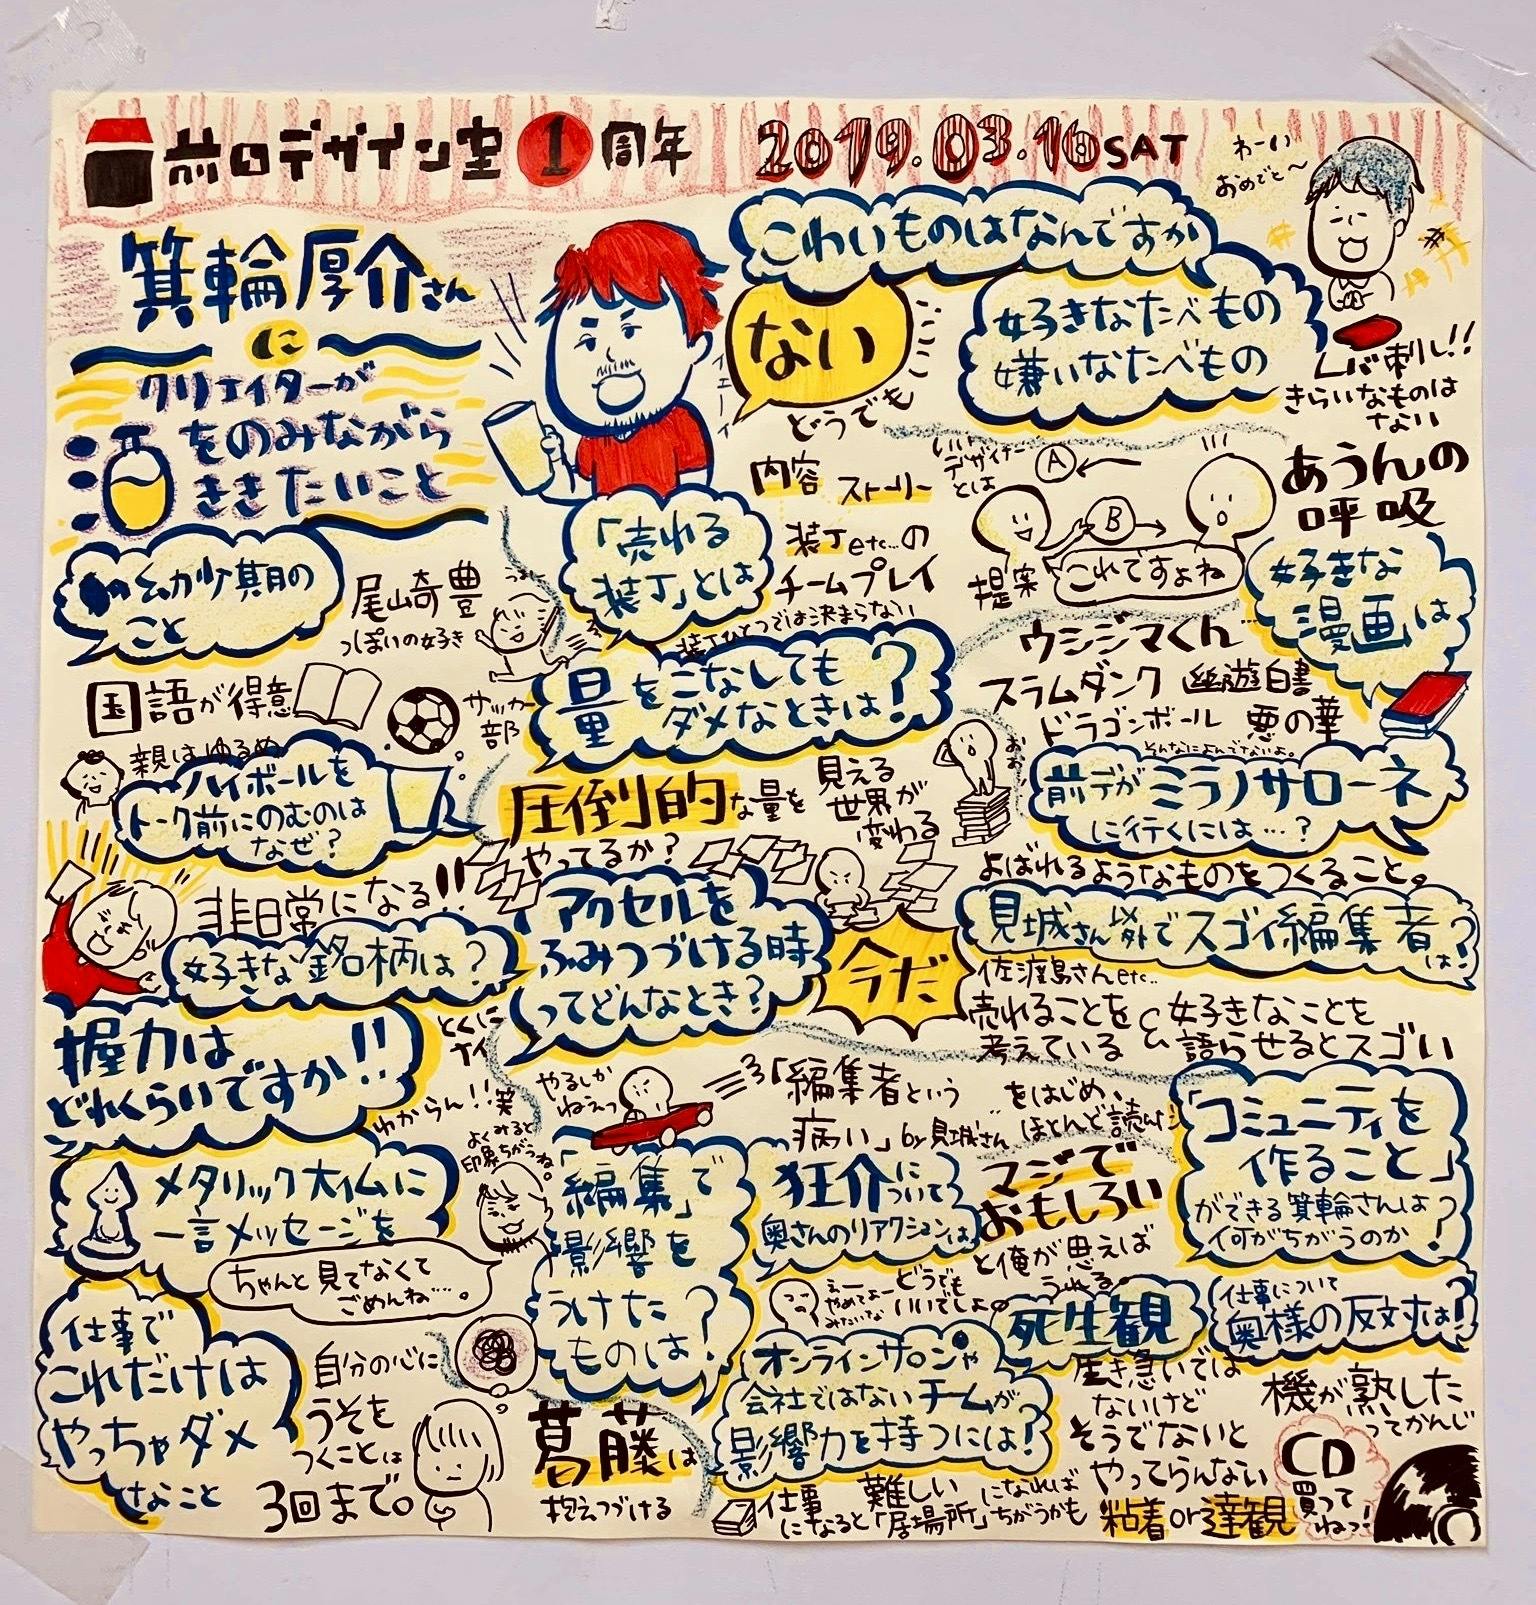 前田デザイン室 1周年 2019.03.16 SAT
わーい
おめでと〜
箕輪厚介さん
に
クリエイターが
酒をのみながら
ききたいこと
イエーイ
こわいものはなんですか
ない
好きなたべもの
嫌いなたべもの
レバ刺し!!
きらいなものは
ない
幼少期の
こと
尾崎豊
っぽいの好き
国語が得意
サッカー
部
親はゆるめ
ハイボールを
トーク前にのむのは
なぜ?
非日常になる!!
好きな銘柄は?
とくに
ナイ
握力は
どれくらいですか!!
わからん!! 笑
メタリック太仏に
一言メッセージを
よくみると
印象ちがうね。
ちゃんと見てなくて
ごめんね…。
仕事で
これだけは
やっちゃダメ
なこと
自分の心に
うそを
つくことは
3回まで。
「売れる
装丁」とは
どうでも
いい
内容 ストーリー
装丁etc…の
チームプレイ
装丁ひとつでは決まらない
量をこなしても
ダメなときは?
圧倒的な量を
やってるか?
見える
世界が
変わる
アクセルを
ふみつづける時
ってどんなとき?
今だ
やるしか
ねえっ
「編集」で
影響を
うけた
ものは?
「編集者という
病い」by見城さん
をはじめ、
ほとんど読んだ
葛藤は
抱えつづける
デザイナー
とは
A
B
提案
これですよね
あうんの
呼吸
好きな
漫画は
ウシジマくん
スラムダンク 幽遊白書
ドラゴンボール 悪の華
そんなによんでないよ。
前デがミラノサローネ
に行くには…?
よばれるようなものをつくること。
見城さん以外でスゴイ編集者は?
佐渡島さんetc…
売れることを
考えている
&
好きなことを
語らせるとスゴい
狂介について
奥さんのリアクションは
えー
やめてよー
みたいな
どうでも
いいでしょ。
マジで
おもしろい
と俺が思えば
うれる。
「コミュニティを
作ること」
ができる箕輪さんは
何がちがうのか?
オンラインサロンや
会社ではないチームが
影響力を持つには!
仕事
になると
難しい
「居場所」
になれば
ちがうかも
死生観
生き急いでは
ないけど
そうでないと
やってらんない
粘着or達観
仕事について
奥様の反対は!
機が熟した
ってかんじ
CD
買って
ねっ!